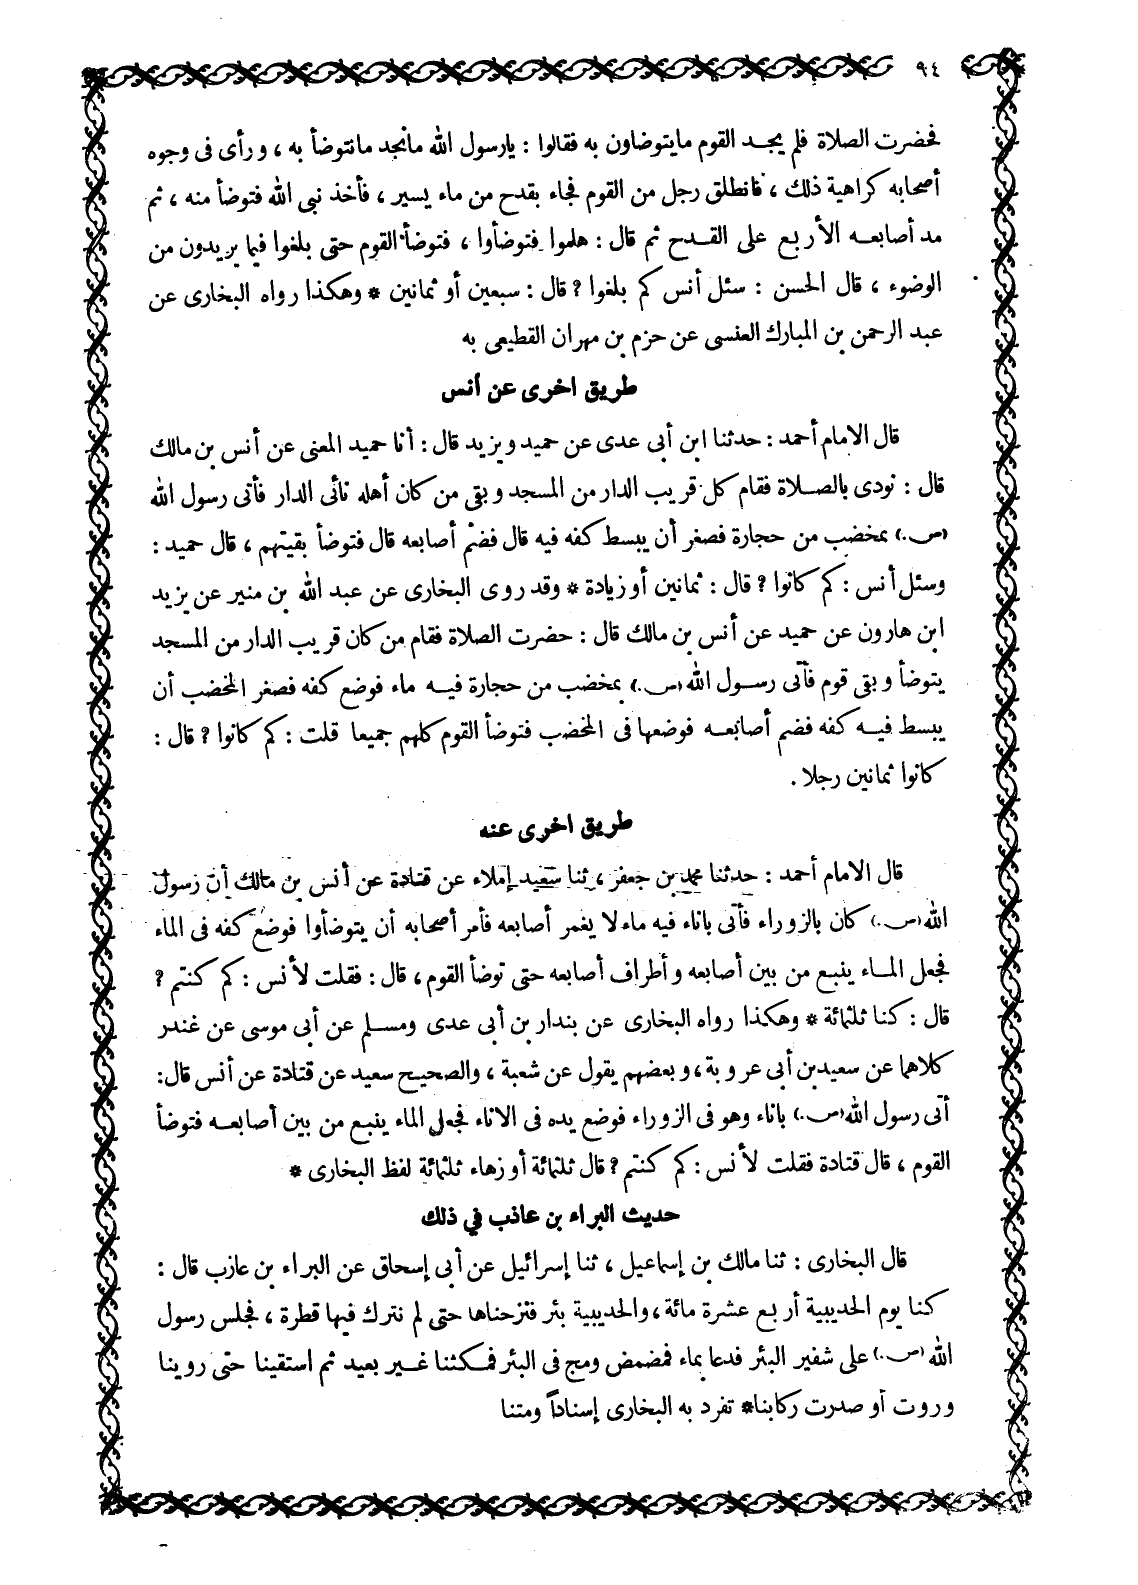 ٩٤
فحضرت الصلاة فلم يجـد القوم مايتوضاون به فقالوا : يارسول الله مانجد مانتوضأ به ، ورأى فى وجوه
أصحابه كراهية ذلك ، فانطلق رجل من القوم فجاء بقدح من ماء يسير ، فأخذ نبى الله فتوضأ منه ، ثم
مد أصابعـه الأربع على القـدح ثم قال : هلموا فتوضأوا ، فتوضأ القوم حتى بلغوا فيما يريدون من
الوضوء ، قال الحسن : سئل أنس كم بلغوا ? قال : سبعين أو ثمانين * وهكذا رواه البخارى عن
عبد الرحمن بن المبارك العنسى عن حزم بن مهران القطيعى به
طريق اخرى عن أنس
قال الامام أحمد : حدثنا ابن أبى عدى عن حميد ويزيد قال : أنا حميد المعنى عن أنس بن مالك
قال : نودى بالصـلاة فقام كل قريب الدار من المسجد وبقى من كان أهله نائى الدار فأتى رسول الله
(ص.) بمخضب من حجارة فصغر أن يبسط كفه فيه قال فضم أصابعه قال فتوضأ بقيتهم ، قال حميد :
وسئل أنس : كم كانوا ? قال : ثمانين أو زيادة * وقد روى البخارى عن عبد الله بن منير عن يزيد
ابن هارون عن حميد عن أنس بن مالك قال : حضرت الصلاة فقام من كان قريب الدار من المسجد
يتوضأ وبقى قوم فأتى رسـول الله (ص.) بمخضب من حجارة فيـه ماء فوضع كفه فصغر المخضب أن
يبسط فيـه كفه فضم أصابعـه فوضعها فى المخضب فتوضأ القوم كلهم جميعا قلت : كم كانوا ? قال :
كانوا ثمانين رجلا .
طريق اخرى عنه
قال الامام أحمد : حدثنا محمد بن جعفر ، ثنا سعيد إملاء عن قتادة عن أنس بن مالك أن رسول
الله (ص.) كان بالزوراء فأتى باناء فيه ماء لا يغمر أصابعه فأمر أصحابه أن يتوضأوا فوضع كفه فى الماء
فجعل المـاء ينبع من بين أصابعه وأطراف أصابعه حتى توضأ القوم ، قال : فقلت لأنس : كم كنتم ?
قال : كنا ثلثمائة * وهكذا رواه البخارى عن بندار بن أبى عدى ومسـلم عن أبى موسى عن غندر
كلاهما عن سعيدبن أبى عروبة ، وبعضهم يقول عن شعبة ، والصحيح سعيد عن قتادة عن أنس قال:
أتى رسول الله (ص.) باناء وهو فى الزوراء فوضع يده فى الاناء فجعل الماء ينبع من بين أصابعـه فتوضأ
القوم ، قال قتادة فقلت لأنس : كم كنتم ? قال ثلثمائة أو زهاء ثلثمائة لفظ البخارى *
حديث البراء بن عاذب في ذلك
قال البخارى : ثنا مالك بن إسماعيل ، ثنا إسرائيل عن أبى إسحاق عن البراء بن عازب قال :
كنا يوم الحديبية أربع عشرة مائة ، والحديبية بئر فنزحناها حتى لم نترك فيها قطرة ، فجلس رسول
الله (ص.) على شفير البئر فدعا بماء فمضمض ومج فى البئر فمـكثنا غـير بعيد ثم استقينا حتى روينا
وروت أو صدرت ركابنا* تفرد به البخارى إسناداً ومتنا